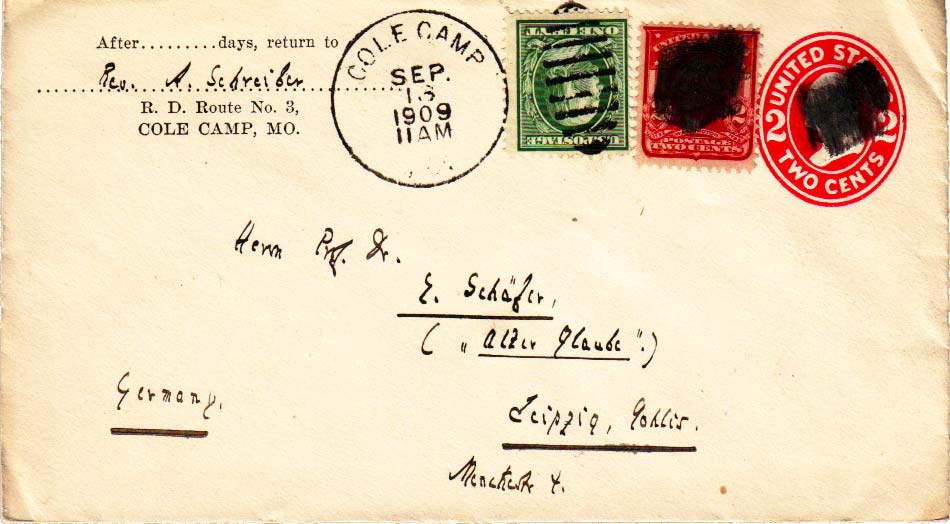 After.........days, return to
Rev. A. Schreiber
R. D. Route No. 3,
COLE CAMP, MO.
COLE CAMP
SEP.
13
1909
11AM
ONE CENT
U.S. POSTAGE
2
POSTAGE
TWO CENTS
UNITED STATES
2 2
TWO CENTS
Herrn Prof. Dr.
E. Schäfer,
( „Alter Glaube“.)
Germany.
Leipzig, Gohlis.
Menckestr 4.